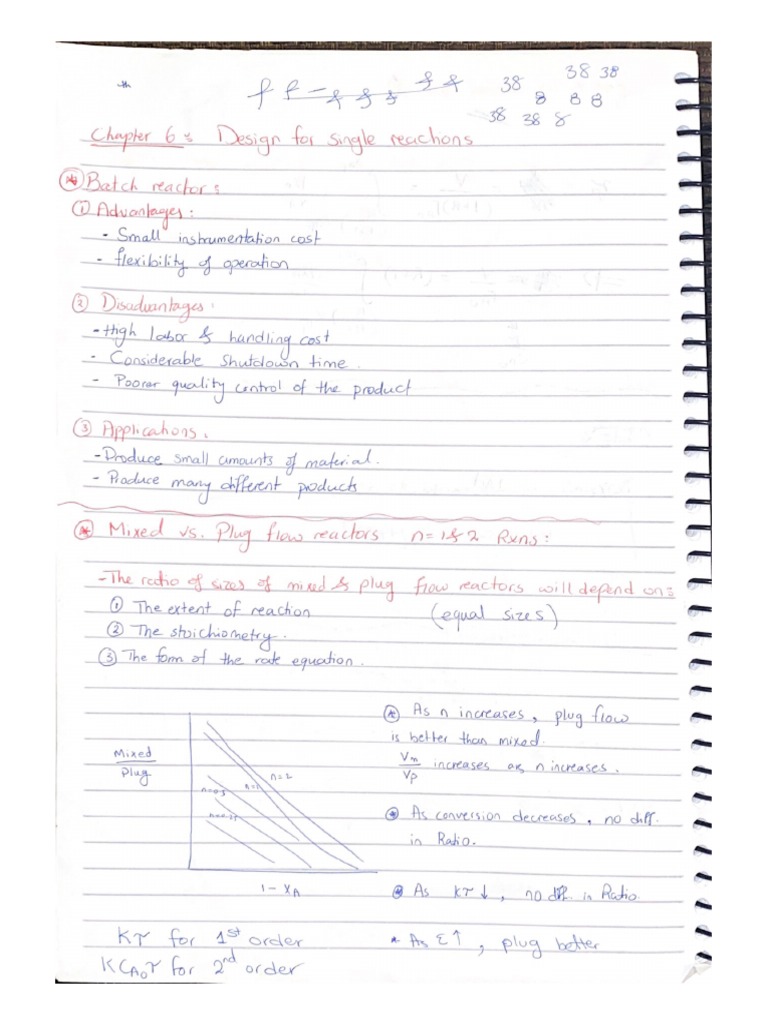 38 38 38
8 8 8
38 38 8
Chapter 6: Design for single reactions
* Batch reactor:
① Advantages:
- Small instrumentation cost
- flexibility of operation
② Disadvantages:
- High labor & handling cost
- Considerable shutdown time.
- Poorer quality control of the product
③ Applications.
- Produce small amounts of material.
- Produce many different products
* Mixed vs. Plug flow reactors n=1&2 Rxns:
- The ratio of sizes of mixed & plug flow reactors will depend on:
① The extent of reaction (equal sizes)
② The stoichiometry.
③ The form of the rate equation.
Mixed
Plug
n=2
n=1
n=0.5
n=0.25
1-XA
* As n increases, plug flow
is better than mixed.
Vm
Vp
increases as n increases.
* As conversion decreases, no diff.
in Ratio.
* As Kτ↓, no diff. in Ratio.
* As Ɛ↑, plug better
Kτ for 1st order
KCA0τ for 2nd order